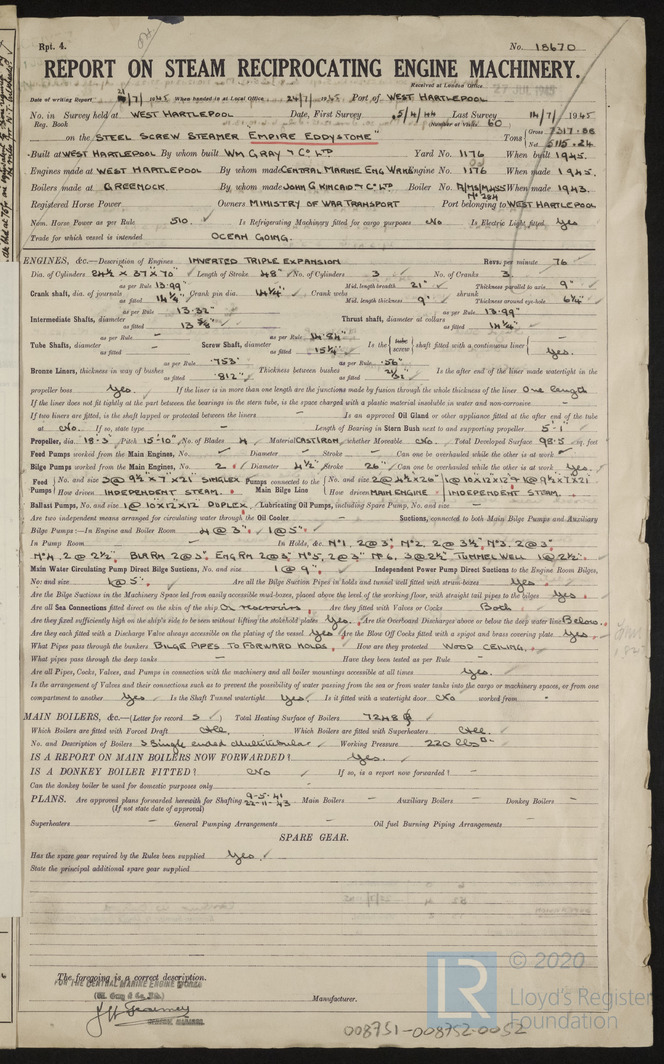 Rpt. 4. No. 18670
REPORT ON STEAM RECIPROCATING ENGINE MACHINERY.
Received at London Office 27 JUL 1945
Date of writing Report 21/7/1945 When handed in at Local Office 24/7/1945 Port of WEST HARTLEPOOL
No. in Survey held at WEST HARTLEPOOL Date, First Survey 5/4/44 Last Survey 14/7/1945
Reg. Book (Number of Visits 60)
on the STEEL SCREW STEAMER EMPIRE EDDYSTONE" Tons Gross 7317.88 Net 5115.24
Built at WEST HARTLEPOOL By whom built WM GRAY & Co LTD Yard No. 1176 When built 1945.
Engines made at WEST HARTLEPOOL By whom made CENTRAL MARINE ENG WKS Engine No. 1176 When made 1945.
Boilers made at GREENOCK By whom made JOHN G KINCAID & Co LTD Boiler No. When made 1943.
Registered Horse Power Owners MINISTRY OF WAR TRANSPORT Port belonging to WEST HARTLEPOOL
Nom. Horse Power as per Rule 510. Is Refrigerating Machinery fitted for cargo purposes No Is Electric Light fitted Yes
Trade for which vessel is intended OCEAN GOING.
ENGINES, &c.—Description of Engines INVERTED TRIPLE EXPANSION Revs. per minute 76
Dia. of Cylinders 24½ X 37" X 70" Length of Stroke 48" No. of Cylinders 3 No. of Cranks 3.
Crank shaft, dia. of journals as per Rule 13.99 as fitted 14¼" Crank pin dia. 14¼" Crank webs Mid. length breadth 21" Mid. length thickness 9" shrunk Thickness parallel to axis 9" Thickness around eye-hole 6¼"
Intermediate Shafts, diameter as per Rule 13.32" as fitted 13 5/8" Thrust shaft, diameter at collars as per Rule 13.99" as fitted 14¼"
Tube Shafts, diameter as per Rule - as fitted - Screw Shaft, diameter as per Rule 14.84" as fitted 15¼" Is the {tube screw} shaft fitted with a continuous liner { Yes.
Bronze Liners, thickness in way of bushes as per Rule .753" as fitted .812" Thickness between bushes as per Rule .56" as fitted Is the after end of the liner made watertight in the
propeller boss Yes. If the liner is in more than one length are the junctions made by fusion through the whole thickness of the liner One length
If the liner does not fit tightly at the part between the bearings in the stern tube, is the space charged with a plastic material insoluble in water and non-corrosive -
If two liners are fitted, is the shaft lapped or protected between the liners - Is an approved Oil Gland or other appliance fitted at the after end of the tube
at No. If so, state type - Length of Bearing in Stern Bush next to and supporting propeller 5'-1"
Propeller, dia. 18'.3" Pitch 15'-10" No. of Blades 4 Material CAST IRON whether Moveable No. Total Developed Surface 98.5 sq. feet
Feed Pumps worked from the Main Engines, No. - Diameter - Stroke - Can one be overhauled while the other is at work -
Bilge Pumps worked from the Main Engines, No. 2. Diameter 4½" Stroke 26" Can one be overhauled while the other is at work Yes.
Feed Pumps { No. and size 3@ 9½" X 7 X 21" SIMPLEX How driven INDEPENDENT STEAM. Pumps connected to the Main Bilge Line { No. and size 2@ 4½X26" 1@10X12X12 & 1@9½X7X21 How driven MAIN ENGINE INDEPENDENT STEAM.
Ballast Pumps, No. and size 1@ 10X12X12" DUPLEX. Lubricating Oil Pumps, including Spare Pump, No. and size -
Are two independent means arranged for circulating water through the Oil Cooler - Suctions, connected to both Main Bilge Pumps and Auxiliary
Bilge Pumps;—In Engine and Boiler Room 4 @ 3". 1 @ 5".
In Pump Room - In Holds, &c. No 1, 2@3", No 2, 2@ 3½", No 3. 2@3"
No 4. 2@ 2½". BLR RM 2@3", ENG RM 2@3", No 5, 2@3" No 6. 3@2½". TUNNEL WELL 1@2½".
Main Water Circulating Pump Direct Bilge Suctions, No. and size 1@ 9". Independent Power Pump Direct Suctions to the Engine Room Bilges,
No. and size 1@ 5". Are all the Bilge Suction Pipes in holds and tunnel well fitted with strum-boxes Yes
Are the Bilge Suctions in the Machinery Space led from easily accessible mud-boxes, placed above the level of the working floor, with straight tail pipes to the bilges Yes.
Are all Sea Connections fitted direct on the skin of the ship On reservoirs Are they fitted with Valves or Cocks Both
Are they fixed sufficiently high on the ship's side to be seen without lifting the stokehold plates Yes. Are the Overboard Discharges above or below the deep water line Below.
Are they each fitted with a Discharge Valve always accessible on the plating of the vessel Yes Are the Blow Off Cocks fitted with a spigot and brass covering plate Yes.
What Pipes pass through the bunkers BILGE PIPES TO FORWARD HOLDS. How are they protected WOOD CEILING.
What pipes pass through the deep tanks - Have they been tested as per Rule -
Are all Pipes, Cocks, Valves, and Pumps in connection with the machinery and all boiler mountings accessible at all times Yes.
Is the arrangement of Valves and their connections such as to prevent the possibility of water passing from the sea or from water tanks into the cargo or machinery spaces, or from one
compartment to another Yes Is the Shaft Tunnel watertight Yes. Is it fitted with a watertight door No worked from -
MAIN BOILERS, &c.—(Letter for record S ) Total Heating Surface of Boilers 7248
Which Boilers are fitted with Forced Draft All. Which Boilers are fitted with Superheaters All.
No. and Description of Boilers 3 Single ended Multitubular Working Pressure 220 lbs
IS A REPORT ON MAIN BOILERS NOW FORWARDED? Yes.
IS A DONKEY BOILER FITTED? No If so, is a report now forwarded? -
Can the donkey boiler be used for domestic purposes only -
PLANS. Are approved plans forwarded herewith for Shafting 9-5-41 22-11-43 Main Boilers - Auxiliary Boilers - Donkey Boilers -
(If not state date of approval)
Superheaters - General Pumping Arrangements - Oil fuel Burning Piping Arrangements -
SPARE GEAR.
Has the spare gear required by the Rules been supplied Yes.
State the principal additional spare gear supplied
The foregoing is a correct description.
FOR THE CENTRAL MARINE ENGINE WORKS
(Wm. Gray & Co. Ltd.)
Manufacturer.
GENERAL MANAGER
© 2020
LR
Lloyd's Register
Foundation
008751-008752-0052